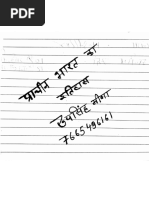 प्राचीन भारत का
इतिहास
उपसिंह मीणा
7665496161